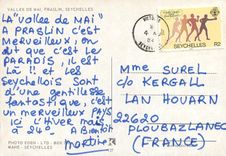 VALLEE DE MAI, PRASLIN, SEYCHELLES
LA "VALLEE DE MAI"
A PRASLIN C'EST
MERVEILLEUX, ON
DIT QUE C'EST LE
PARADIS, IL EST
LÀ !! et LES
SEYCHELLOIS SONT
D'UNE GENTILLESSE
FANTASTIQUE, C'EST
UN MERVEILLEUX PAYS
ICI L'HIVER MAIS
à 24° A Bientôt
Martine
PHOTO EDEN - LTD - BOX
MAHE - SEYCHELLES
SEYCHELLES
R2
Mme SUREL
C/o KERGALL
LAN HOUARN
22620
PLOUBAZLANEC
(FRANCE)